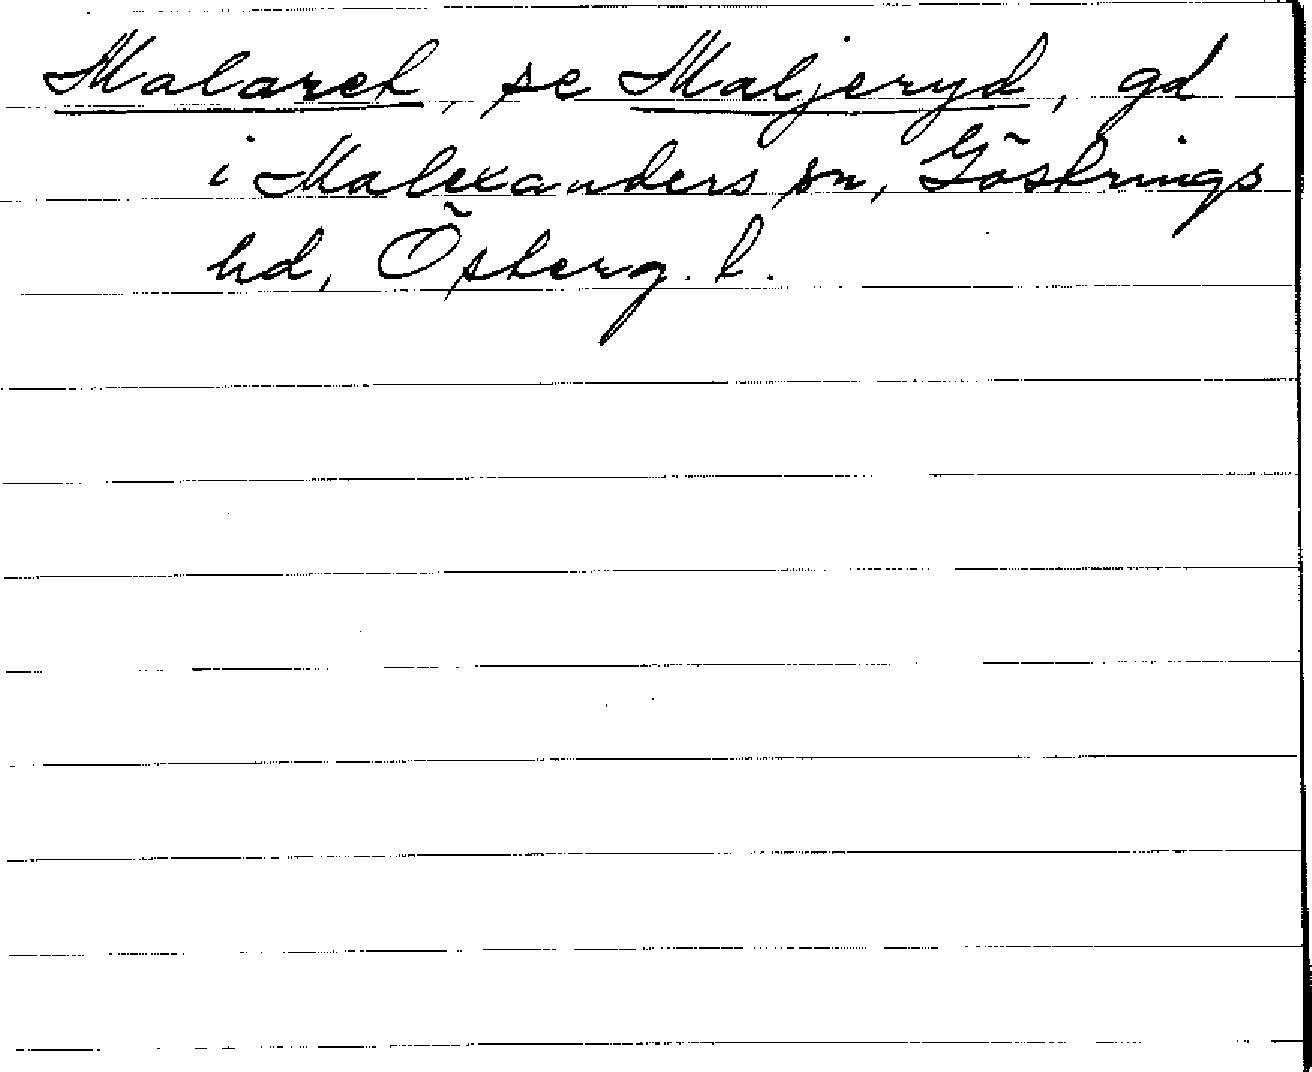 Malarek, se Maljeryd, gd
i Malexanders sn, Göstrings
hd, Östergö. l.